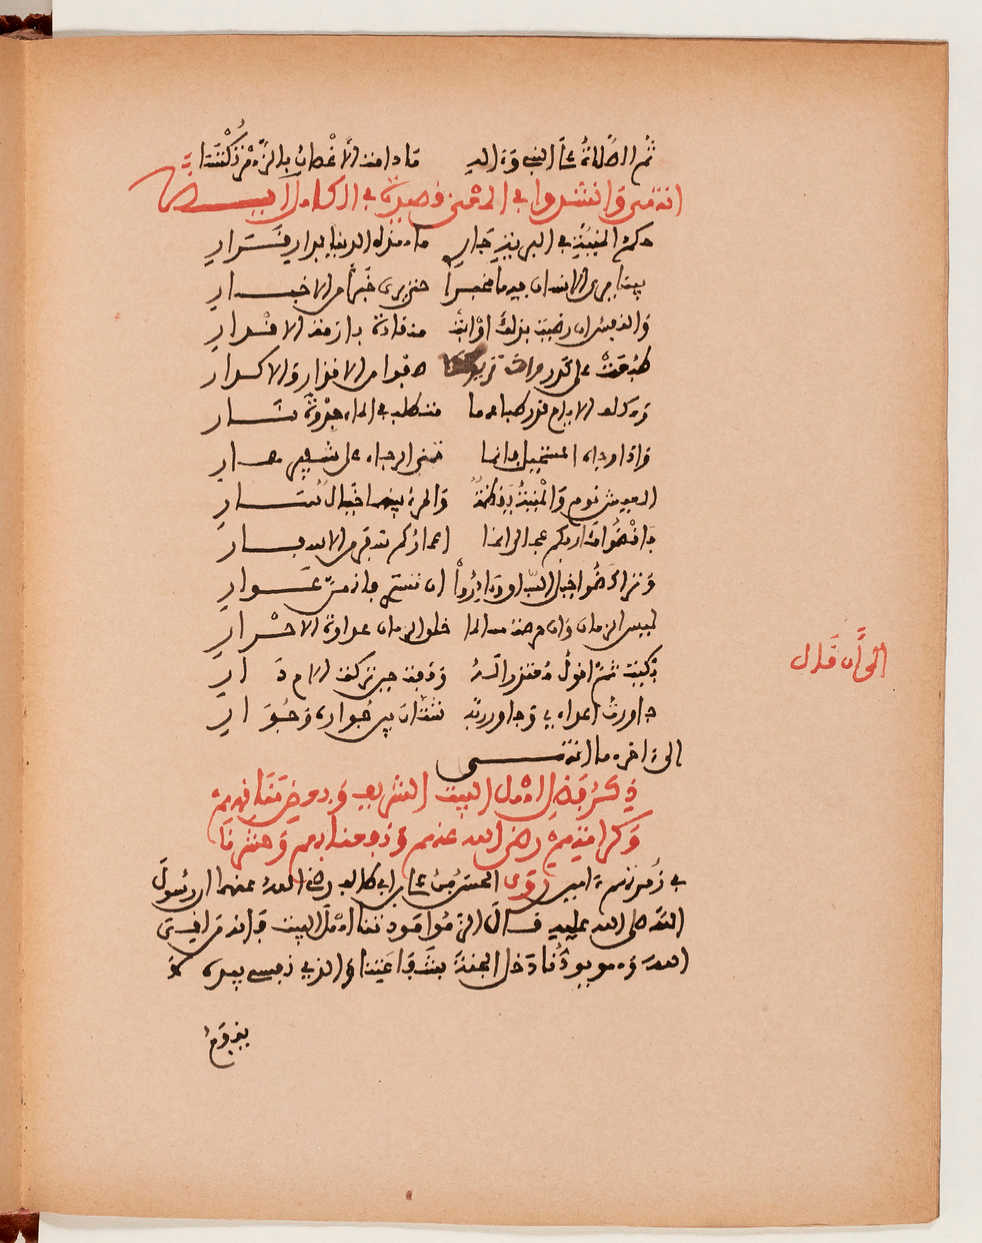 ثم الصلاة على النبي وءاله ما دامت الأغصان بالزهر
انتهى وانشدوا في المعنى قصيدة في الكامل
حكم المنية في البرية جار ما هذه الدنيا بدار قرار
بينا يرى الانسان فيها مخبرا حتى يرى خبرا من الاخبار
والنفس ان رضيت بذلك او ابت منقادة بازمة الاقدار
طبعت على كدر وانت تريدها صفوا من الاقذار والاكدار
ومكلف الايام ضد طباعها متطلب في الماء جذوة نار
واذا رجوت المستحيل فانما تبني الرجاء على شفير هار
العيش نوم والمنية يقظة والمرء بينهما خيال سار
فاقضوا مئاربكم عجالا انما اعماركم سفر من الاسفار
وتراكضوا خيل الشباب وبادروا ان تسترد فانهن عوار
ليس الزمان وان حرصت مسالما خلق الزمان عداوة الاحرار
الى أن قال
ابكيه ثم اقول معتذرا له وفقت حين تركت الام دار
جاورت اعدائي وجاور ربه شتان بين جواره وجوار
الى ءاخره انتهى
ذكر فضل اهل البيت الشريف وبعض مناقبهم
وكرامتهم رضي الله عنهم ونفعنا بهم وحشرنا
في زمرتهم ءامين روى الحسن بن علي بن ابي طالب رضي الله عنهما ان رسول
الله صلى الله عليه قال الزموا مودتنا اهل البيت فإنه من لقي
الله وهو يودنا دخل الجنة بشفاعتنا والذي نفسي بيده لا